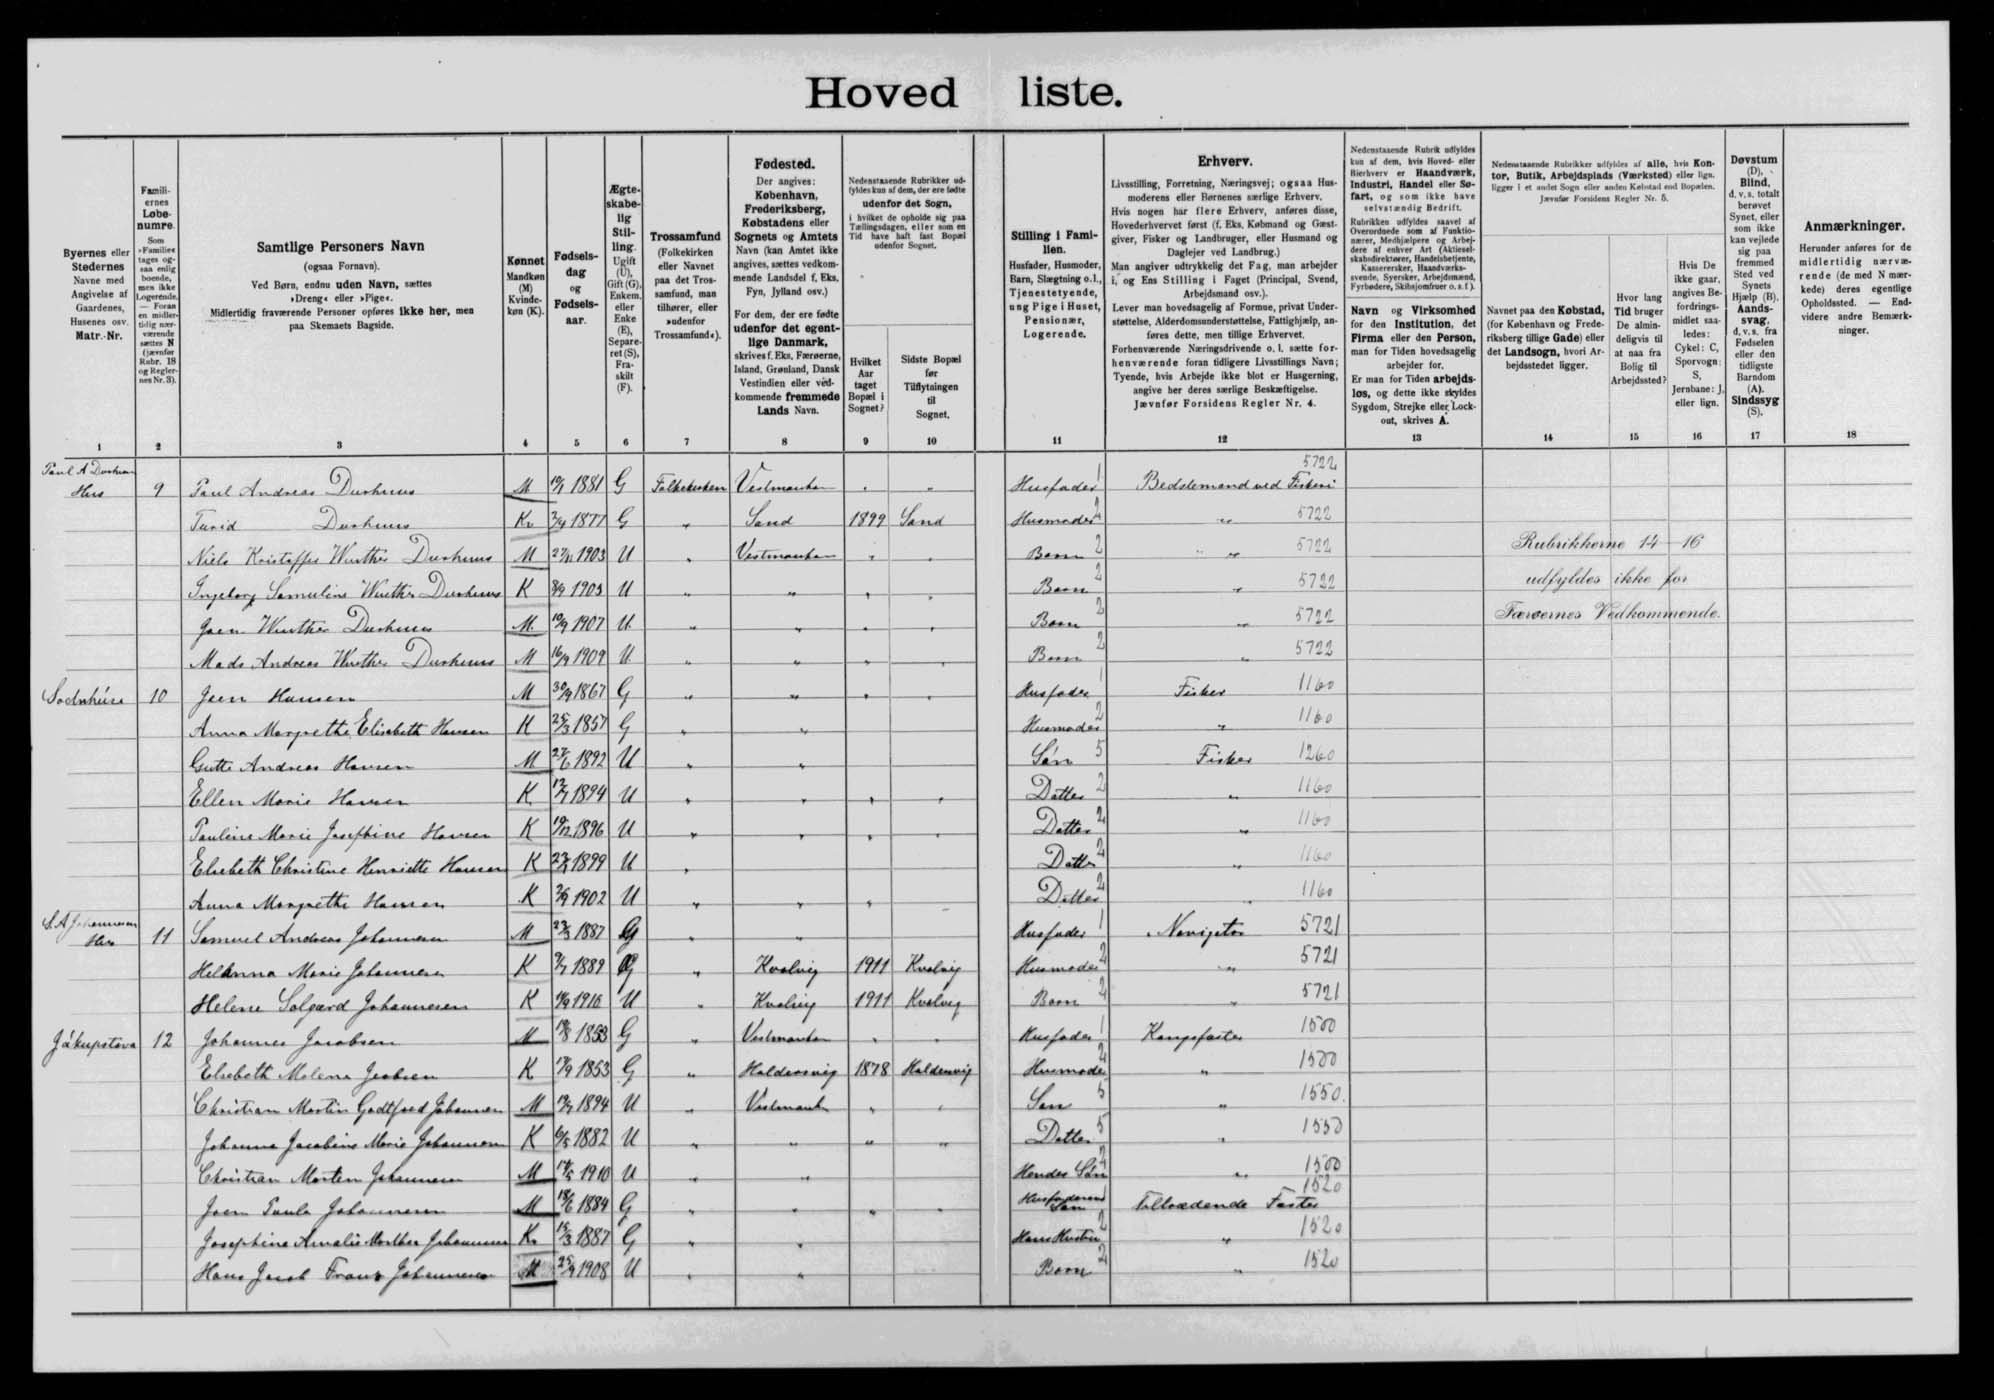 Hoved liste.
Byernes eller Stedernes Navne med Angivelse af Gaardenes, Husenes osv. Matr.-Nr.
Familiernes Løbenumre.
Som »Familie« tages ogsaa enlig boende, men ikke Logerende. — Foran en midlertidig nærværende sættes N (jævnfør Rubr. 18 og Reglernes Nr. 3).
Samtlige Personers Navn
(ogsaa Fornavn).
Ved Børn, endnu uden Navn, sættes »Dreng« eller »Pige«.
Midlertidig fraværende Personer opføres ikke her, men paa Skemaets Bagside.
Kønnet
Mandkøn (M) Kvindekøn (K).
Fødselsdag og Fødselsaar.
Ægteskabelig Stilling.
Ugift (U), Gift (G), Enkem. eller Enke (E), Separeret (S), Fraskilt (F).
Trossamfund
(Folkekirken eller Navnet paa det Trossamfund, man tilhører, eller »udenfor Trossamfund«).
Fødested.
Der angives: København, Frederiksberg, Købstadens eller Sognets og Amtets Navn (kan Amtet ikke angives, sættes vedkommende Landsdel f. Eks. Fyn, Jylland osv.)
For dem, der ere fødte udenfor det egentlige Danmark, skrives f. Eks. Færøerne, Island, Grønland, Dansk Vestindien eller vedkommende fremmede Lands Navn.
Nedenstaaende Rubrikker udfyldes kun af dem, der ere fødte udenfor det Sogn, i hvilket de opholde sig paa Tællingsdagen, eller som en Tid have haft fast Bopæl udenfor Sognet.
Hvilket Aar taget Bopæl i Sognet?
Sidste Bopæl før Tilflytningen til Sognet.
Stilling i Familien.
Husfader, Husmoder, Barn, Slægtning o. l., Tjenestetyende, ung Pige i Huset, Pensionær, Logerende.
Erhverv.
Livsstilling, Forretning, Næringsvej; ogsaa Husmoderens eller Børnenes særlige Erhverv.
Hvis nogen har flere Erhverv, anføres disse, Hovederhvervet først (f. Eks. Købmand og Gæstgiver, Fisker og Landbruger, eller Husmand og Daglejer ved Landbrug.)
Man angiver udtrykkelig det Fag, man arbejder i, og Ens Stilling i Faget (Principal, Svend, Arbejdsmand osv.).
Lever man hovedsagelig af Formue, privat Understøttelse, Alderdomsunderstøttelse, Fattighjælp, anføres dette, men tillige Erhvervet.
Forhenværende Næringsdrivende o. l. sætte forhenværende foran tidligere Livsstillings Navn; Tyende, hvis Arbejde ikke blot er Husgerning, angive her deres særlige Beskæftigelse.
Jævnfør Forsidens Regler Nr. 4.
Nedenstaaende Rubrik udfyldes kun af dem, hvis Hoved- eller Bierhverv er Haandværk, Industri, Handel eller Søfart, og som ikke have selvstændig Bedrift.
Rubrikken udfyldes saavel af Overordnede som af Funktionærer, Medhjælpere og Arbejdere af enhver Art (Aktieselskabsdirektører, Handelsbetjente, Kasserersker, Haandværkssvende, Syersker, Arbejdsmænd, Fyrbødere, Skibsjomfruer o. s. f.).
Navn og Virksomhed for den Institution, det Firma eller den Person, man for Tiden hovedsagelig arbejder for.
Er man for Tiden arbejdsløs, og dette ikke skyldes Sygdom, Strejke eller Lockout, skrives A.
Nedenstaaende Rubrikker udfyldes af alle, hvis Kontor, Butik, Arbejdsplads (Værksted) eller lign. ligger i et andet Sogn eller anden Købstad end Bopælen.
Jævnfør Forsidens Regler Nr. 5.
Navnet paa den Købstad, (for København og Frederiksberg tillige Gade) eller det Landsogn, hvori Arbejdsstedet ligger.
Hvor lang Tid bruger De almindeligvis til at naa fra Bolig til Arbejdssted?
Hvis De ikke gaar, angives Befordringsmidlet saaledes: Cykel: C, Sporvogn: S, Jernbane: J, eller lign.
Døvstum (D), Blind, d. v. s. totalt berøvet Synet, eller som ikke kan vejlede sig paa fremmed Sted ved Synets Hjælp (B). Aandssvag, d. v. s. fra Fødselen eller den tidligste Barndom (A). Sindssyg (S).
Anmærkninger.
Herunder anføres for de midlertidig nærværende (de med N mærkede) deres egentlige Opholdssted. — Endvidere andre Bemærkninger.
1 2 3 4 5 6 7 8 9 10 11 12 13 14 15 16 17 18
Hus 9 Paul Andreas Durhuus M 1881 G Folkekirken Vestmanhavn " " Husfader 1 Bedstemand ved Fiskeri 5722
Turid Durhuus Kv 1877 G " Sand 1899 Sand Husmoder 2 " 5722
Niels Kristoffer Winther Durhuus M 1903 U " Vestmanhavn " " Barn 2 " 5722
Ingeborg Samuline Winther Durhuus K 1905 U " " " " Barn 2 " 5722
Joen Winther Durhuus M 10/9 1907 U " " " " Barn 2 " 5722
Mads Andreas Winther Durhuus M 16/9 1909 U " " " " Barn 2 " 5722
Rubrikkerne 14-16
udfyldes ikke for
Færøernes Vedkommende.
10 Joen Hansen M 30/9 1867 G " " " " Husfader 1 Fisker 1160
Anna Margrethe Elisabeth Hansen K 25/3 1857 G " " Husmoder 2 " 1160
Gutte Andreas Hansen M 27/6 1892 U " " Søn 5 Fisker 1260
Ellen Marie Hansen K 1894 U " " " " Datter 2 " 1160
Pauline Marie Josephine Hansen K 19/12 1896 U " " " " Datter 2 " 1160
Elsebeth Christine Henriette Hansen K 1899 U " Datter 2 " 1160
Anna Margrethe Hansen K 1902 U " " " Datter 2 " 1160
S. A. Johannesen Hus 11 Samuel Andreas Johannesen M 23/3 1887 G " " Husfader 1 Navigatør 5721
Helanna Marie Johannesen K 1889 G " Kvalvig 1911 Kvalvig Husmoder 2 " 5721
Helene Solgerd Johannesen K 1910 U " Kvalvig 1911 Kvalvig Barn 2 " 5721
Jákupstova 12 Johannes Jacobsen M 1853 G " Vestmanhavn " " Husfader 1 Kongsfæster 1500
Elsebeth Malene Jacobsen K 1853 G " Haldersvig 1878 Haldersvig Husmoder 2 " 1500
Christian Martin Godtfred Johannesen M 1894 U " Vestmanhavn " " Søn 5 " 1550
Johanna Jacobine Marie Johannesen K 6/5 1882 U " " " " Datter 5 " 1550
Christian Morten Johannesen M 1910 U " " Hendes Søn 2 " 1500
Joen Paule Johannesen M 18/6 1884 G " " " " Husfaderens Søn 1 Tiltrædende Fæster 1520
Josephine Amalie Marthea Johannesen Kv 15/3 1887 G " " Hans Hustru 2 " 1520
Hans Jacob Frans Johannesen M 25/9 1908 U " " Barn 2 " 1520